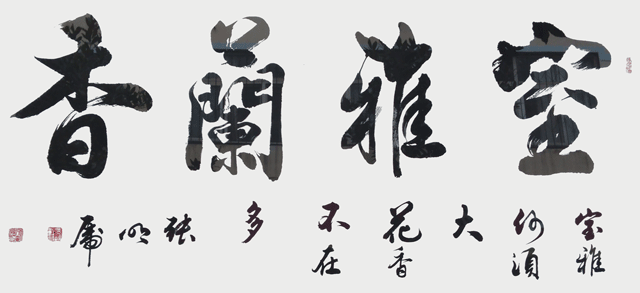 室雅蘭香
室雅何須大花香不在多張明虎